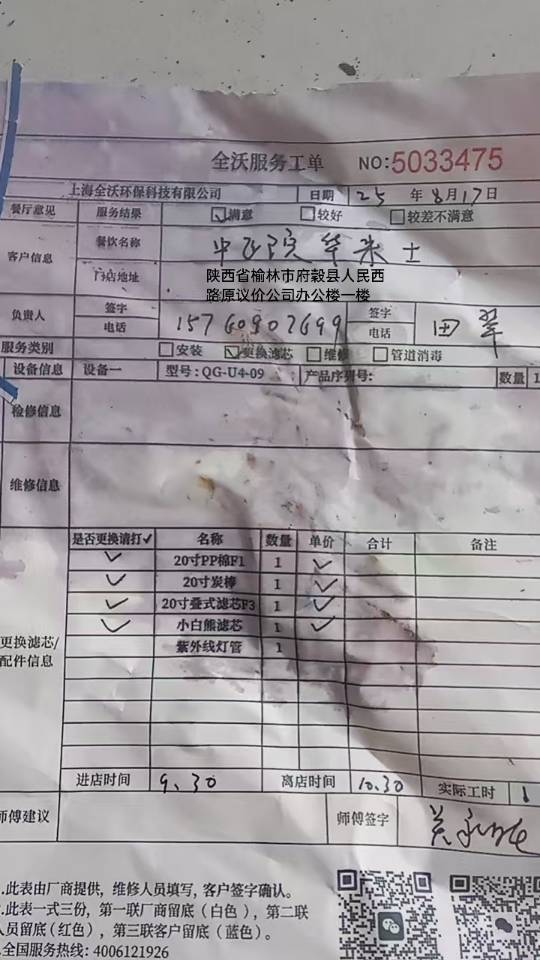 全沃服务工单 NO:5033475
上海全沃环保科技有限公司 日期 25 年 8月17日
餐厅意见 服务结果 满意 较好 较差不满意
客户信息 餐饮名称 中医院华莱士
门店地址 陕西省榆林市府毂县人民西
路原议价公司办公楼一楼
负责人 签字 签字 田翠
电话 15760902699 电话
服务类别 安装 更换滤芯 维修 管道消毒
设备信息 设备一 型号:QG-U4-09 产品序列号: 数量 1
检修信息
维修信息
是否更换请打✓ 名称 数量 单价 合计 备注
✓ 20寸PP棉F1 1 ✓
✓ 20寸炭棒 1 ✓
✓ 20寸叠式滤芯F3 1 ✓
✓ 小白熊滤芯 1 ✓
更换滤芯/
配件信息
紫外线灯管 1
进店时间 9.30 离店时间 10.30 实际工时 1
师傅建议 师傅签字
.此表由厂商提供，维修人员填写，客户签字确认。
.此表一式三份，第一联厂商留底（白色），第二联
人员留底(红色)，第三联客户留底（蓝色）。
.全国服务热线: 4006121926